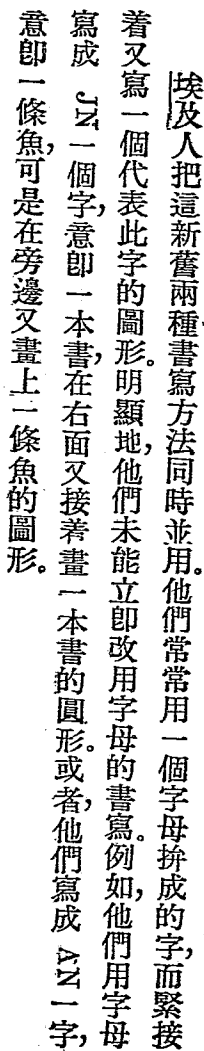 埃及人把這新舊兩種書寫方法同時並用。他們常常用一個字母拚成的字，而緊接
着又寫一個代表此字的圖形。明顯地，他們未能立卽改用字母的書寫。例如，他們用字母
寫成 JN 一個字，意卽一本書，在右面又接着畫一本書的圓形。或者，他們寫成 AN 一字，
意卽一條魚，可是在旁邊又畫上一條魚的圖形。